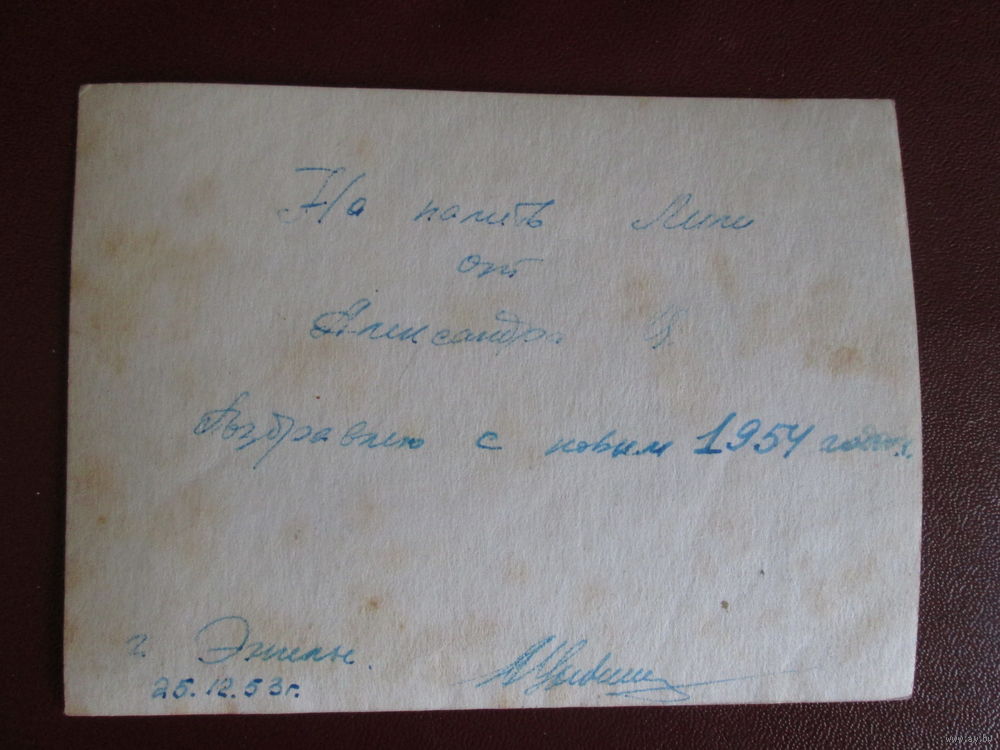 На память Лиле
от
Александра
Поздравляю с новым 1954 годом.
г. Энгельс.
25.12.53г.